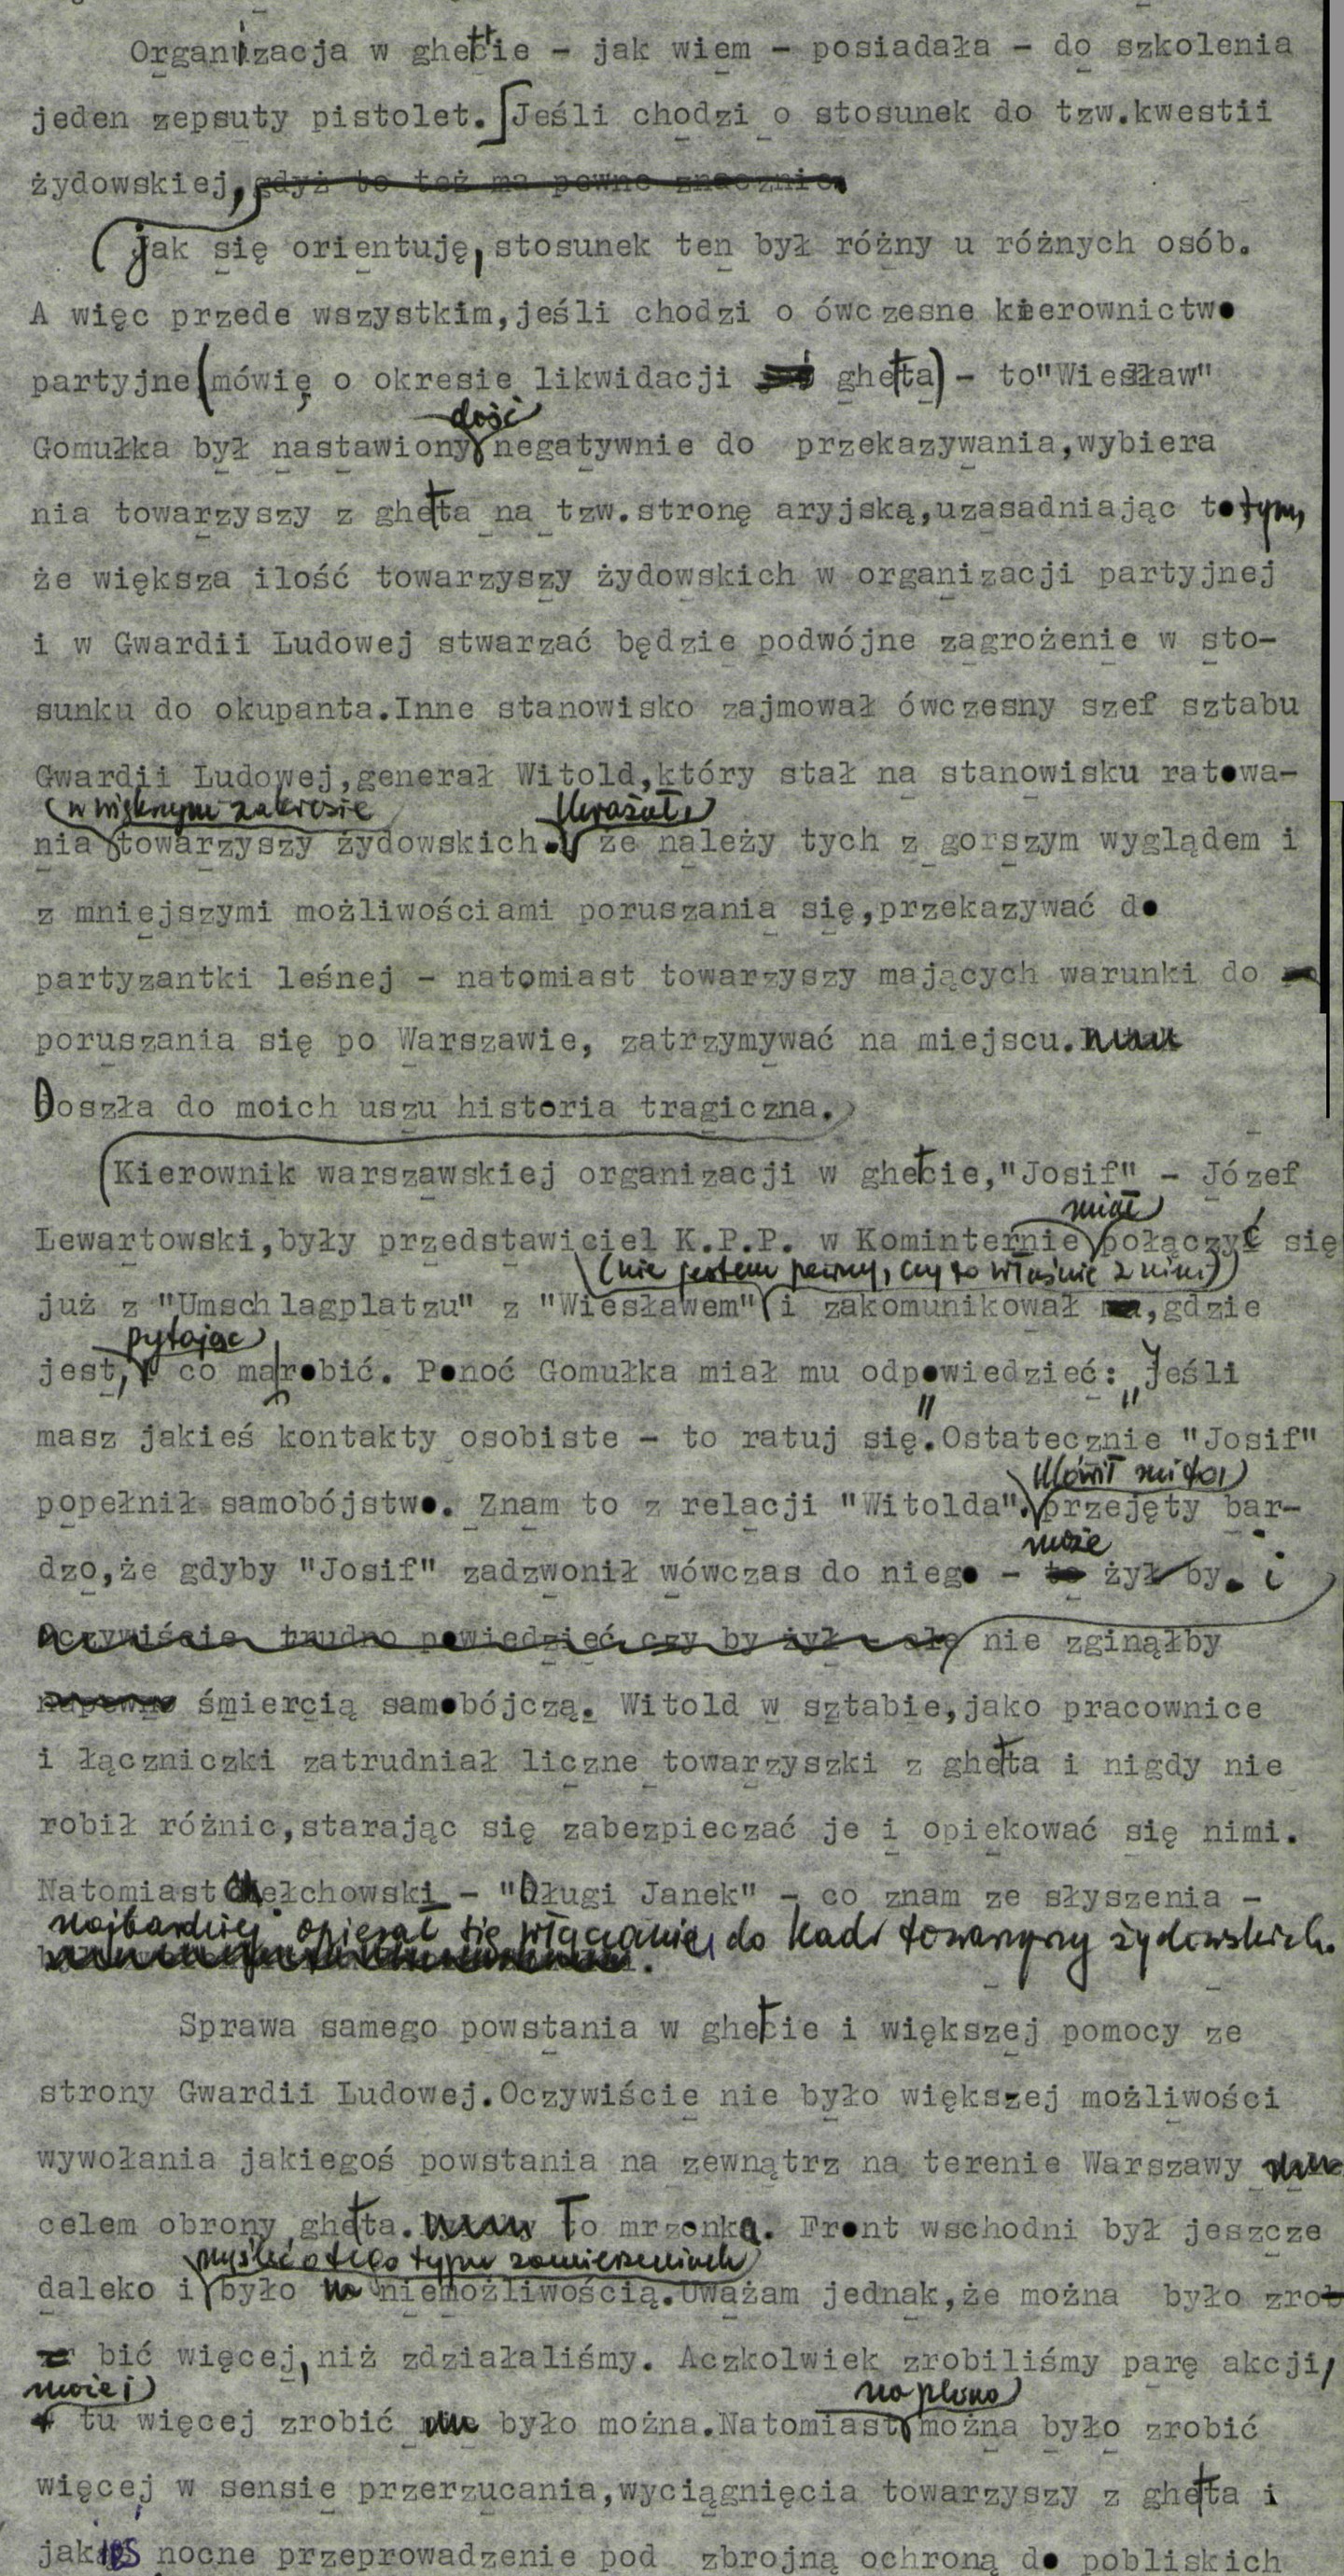 Organizacja w ghettcie - jak wiem - posiadała - do szkolenia
jeden zepsuty pistolet. Jeśli chodzi o stosunek do tzw.kwestii
żydowskiej, gdyż to też ma pewne znacznie.
Jak się orientuję, stosunek ten był różny u różnych osób.
A więc przede wszystkim,jeśli chodzi o ówczesne kierownictwo
partyjne (mówię o okresie likwidacji ghetta) - to"Wiesław"
dość
Gomułka był nastawiony negatywnie do przekazywania,wybiera
nia towarzyszy z ghetta na tzw.stronę aryjską,uzasadniając to tym,
że większa ilość towarzyszy żydowskich w organizacji partyjnej
i w Gwardii Ludowej stwarzać będzie podwójne zagrożenie w sto-
sunku do okupanta.Inne stanowisko zajmował ówczesny szef sztabu
Gwardii Ludowej,generał Witold,który stał na stanowisku ratowa-
(w większym zakresie Uważał,
nia towarzyszy żydowskich. że należy tych z gorszym wyglądem i
z mniejszymi możliwościami poruszania się,przekazywać do
partyzantki leśnej - natomiast towarzyszy mających warunki do
poruszania się po Warszawie, zatrzymywać na miejscu.
Doszła do moich uszu historia tragiczna.
Kierownik warszawskiej organizacji w ghettcie,"Josif" - Józef
miał
Lewartowski,były przedstawiciel K.P.P. w Kominternie połączyć się
(nie jestem pewny, czy to właśnie z nim)
już z "Umschlagplatzu" z "Wiesławem" i zakomunikował ,gdzie
pytając
jest, co ma robić. Ponoć Gomułka miał mu odpowiedzieć: "Jeśli
masz jakieś kontakty osobiste - to ratuj się". Ostatecznie "Josif"
Mówił mi to
popełnił samobójstwo. Znam to z relacji "Witolda". przejęty bar-
może
dzo,że gdyby "Josif" zadzwonił wówczas do niego - to żył by. i
Oczywiście trudno powiedzieć czy by żył - ale nie zginąłby
napewno śmiercią samobójczą. Witold w sztabie,jako pracownice
i łączniczki zatrudniał liczne towarzyszki z ghetta i nigdy nie
robił różnic,starając się zabezpieczać je i opiekować się nimi.
Natomiast Chełchowski - "Długi Janek" - co znam ze słyszenia -
najbardziej opierał się włączaniu do kadr towarzyszy żydowskich.
Sprawa samego powstania w ghettcie i większej pomocy ze
strony Gwardii Ludowej.Oczywiście nie było większej możliwości
wywołania jakiegoś powstania na zewnątrz na terenie Warszawy
celem obrony ghetta. To mrzonka. Front wschodni był jeszcze
myśleć o tego typu zamierzeniach
daleko i było niemożliwością.Uważam jednak,że można było zrob
bić więcej, niż zdziałaliśmy. Aczkolwiek zrobiliśmy parę akcji,
na pewno
tu więcej zrobić było można.Natomiast można było zrobić
więcej w sensie przerzucania,wyciągnięcia towarzyszy z ghetta i
jakieś nocne przeprowadzenie pod zbrojną ochroną do pobliskich